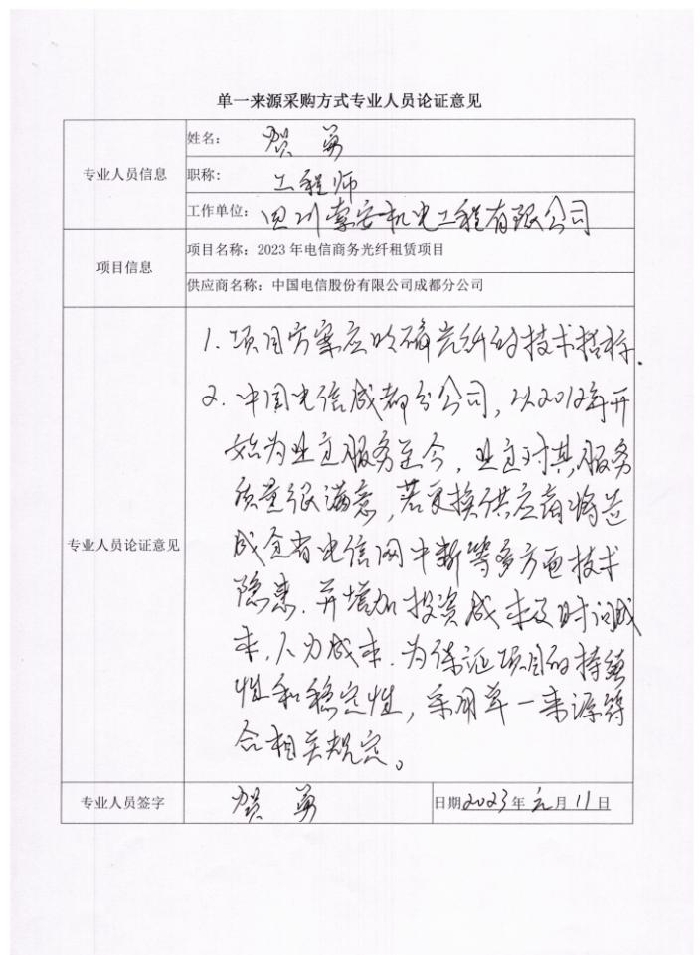 单一来源采购方式专业人员论证意见
专业人员信息
姓名：贺勇
职称：工程师
工作单位：四川 安机电工程有限公司
项目信息
项目名称：2023 年电信商务光纤租赁项目
供应商名称：中国电信股份有限公司成都分公司
专业人员论证意见
1. 项目方案应明确光纤的技术指标.
2. 中国电信成都分公司，从2012年开
始为业主服务至今，业主对其服务
质量很满意，若更换供应商将造
成全省电信网中断等多方面技术
隐患. 并增加投资成本及时间成
本，人力成本. 为保证项目的持续
性和稳定性，采用单一来源符
合相关规定。
专业人员签字
贺勇
日期2023年元月11日